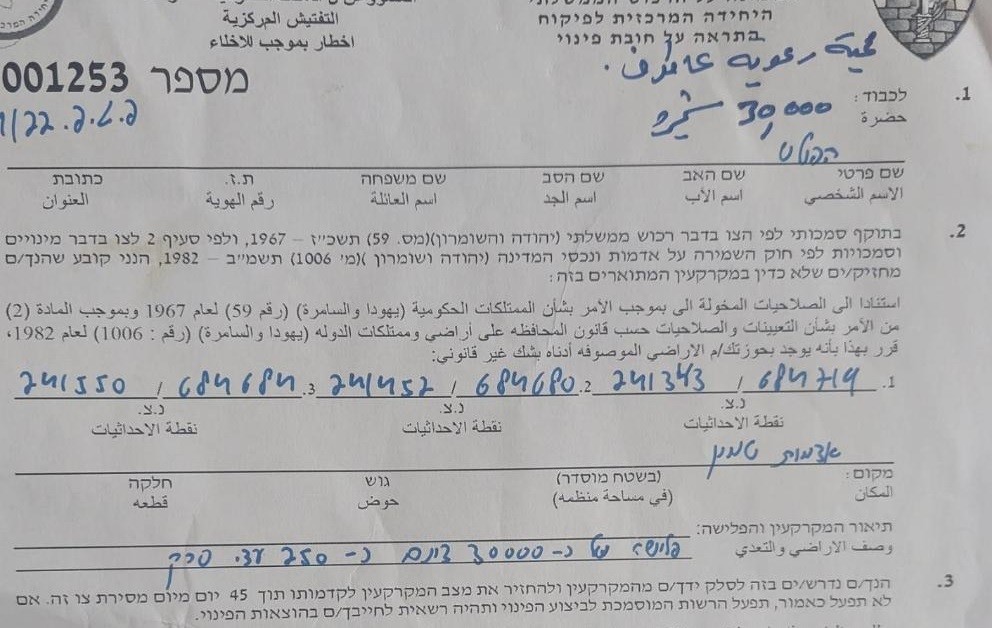 היחידה המרכזית לפיקוח
התפתיש המרכזית
התראה על חובת פינוי
اخطار بموجب للاخلاء
מספר 001253
1. לכבוד:
حضرة
30,000
שם פרטי שם האב שם הסב שם משפחה ת.ז. כתובת
الاسم الشخصي اسم الأب اسم الجد اسم العائلة رقم الهوية العنوان
2. בתוקף סמכותי לפי הצו בדבר רכוש ממשלתי (יהודה והשומרון)(מס. 59) תשכ״ז – 1967, ולפי סעיף 2 לצו בדבר מינויים
וסמכויות לפי חוק השמירה על אדמות ונכסי המדינה (יהודה ושומרון )(מ׳ 1006) תשמ״ב – 1982, הנני קובע שהנך/ם
מחזיק/ים שלא כדין במקרקעין המתוארים בזה:
استنادا الى الصلاحيات المخولة الى بموجب الأمر بشأن الممتلكات الحكومية (يهودا والسامرة) (رقم 59) لعام 1967 وبموجب المادة (2)
من الأمر بشأن التعيينات والصلاحيات حسب قانون المحافظه على أراضي وممتلكات الدوله (يهودا والسامرة) (رقم : 1006) لعام 1982،
قرر بهذا بأنه يوجد بحوزتك/م الاراضي الموصوفه أدناه بشك غير قانوني:
1. 241343 / 684714 2. 241452 / 684680 3. 241550 / 684684
נ.צ. נ.צ. נ.צ.
نقطة الاحداثيات نقطة الاحداثيات نقطة الاحداثيات
אדמות טמון
מקום: (בשטח מוסדר) גוש חלקה
المكان (في مساحة منظمه) حوض قطعه
תיאור המקרקעין והפלישה:
وصف الاراضي والتعدي
פלישה של כ- 30000 דונם כ- 250 עצי סרק
3. הנך/ם נדרש/ים בזה לסלק ידך/ם מהמקרקעין ולהחזיר את מצב המקרקעין לקדמותו תוך 45 יום מיום מסירת צו זה. אם
לא תפעל כאמור, תפעל הרשות המוסמכת לביצוע הפינוי ותהיה רשאית לחייבך/ם בהוצאות הפינוי.